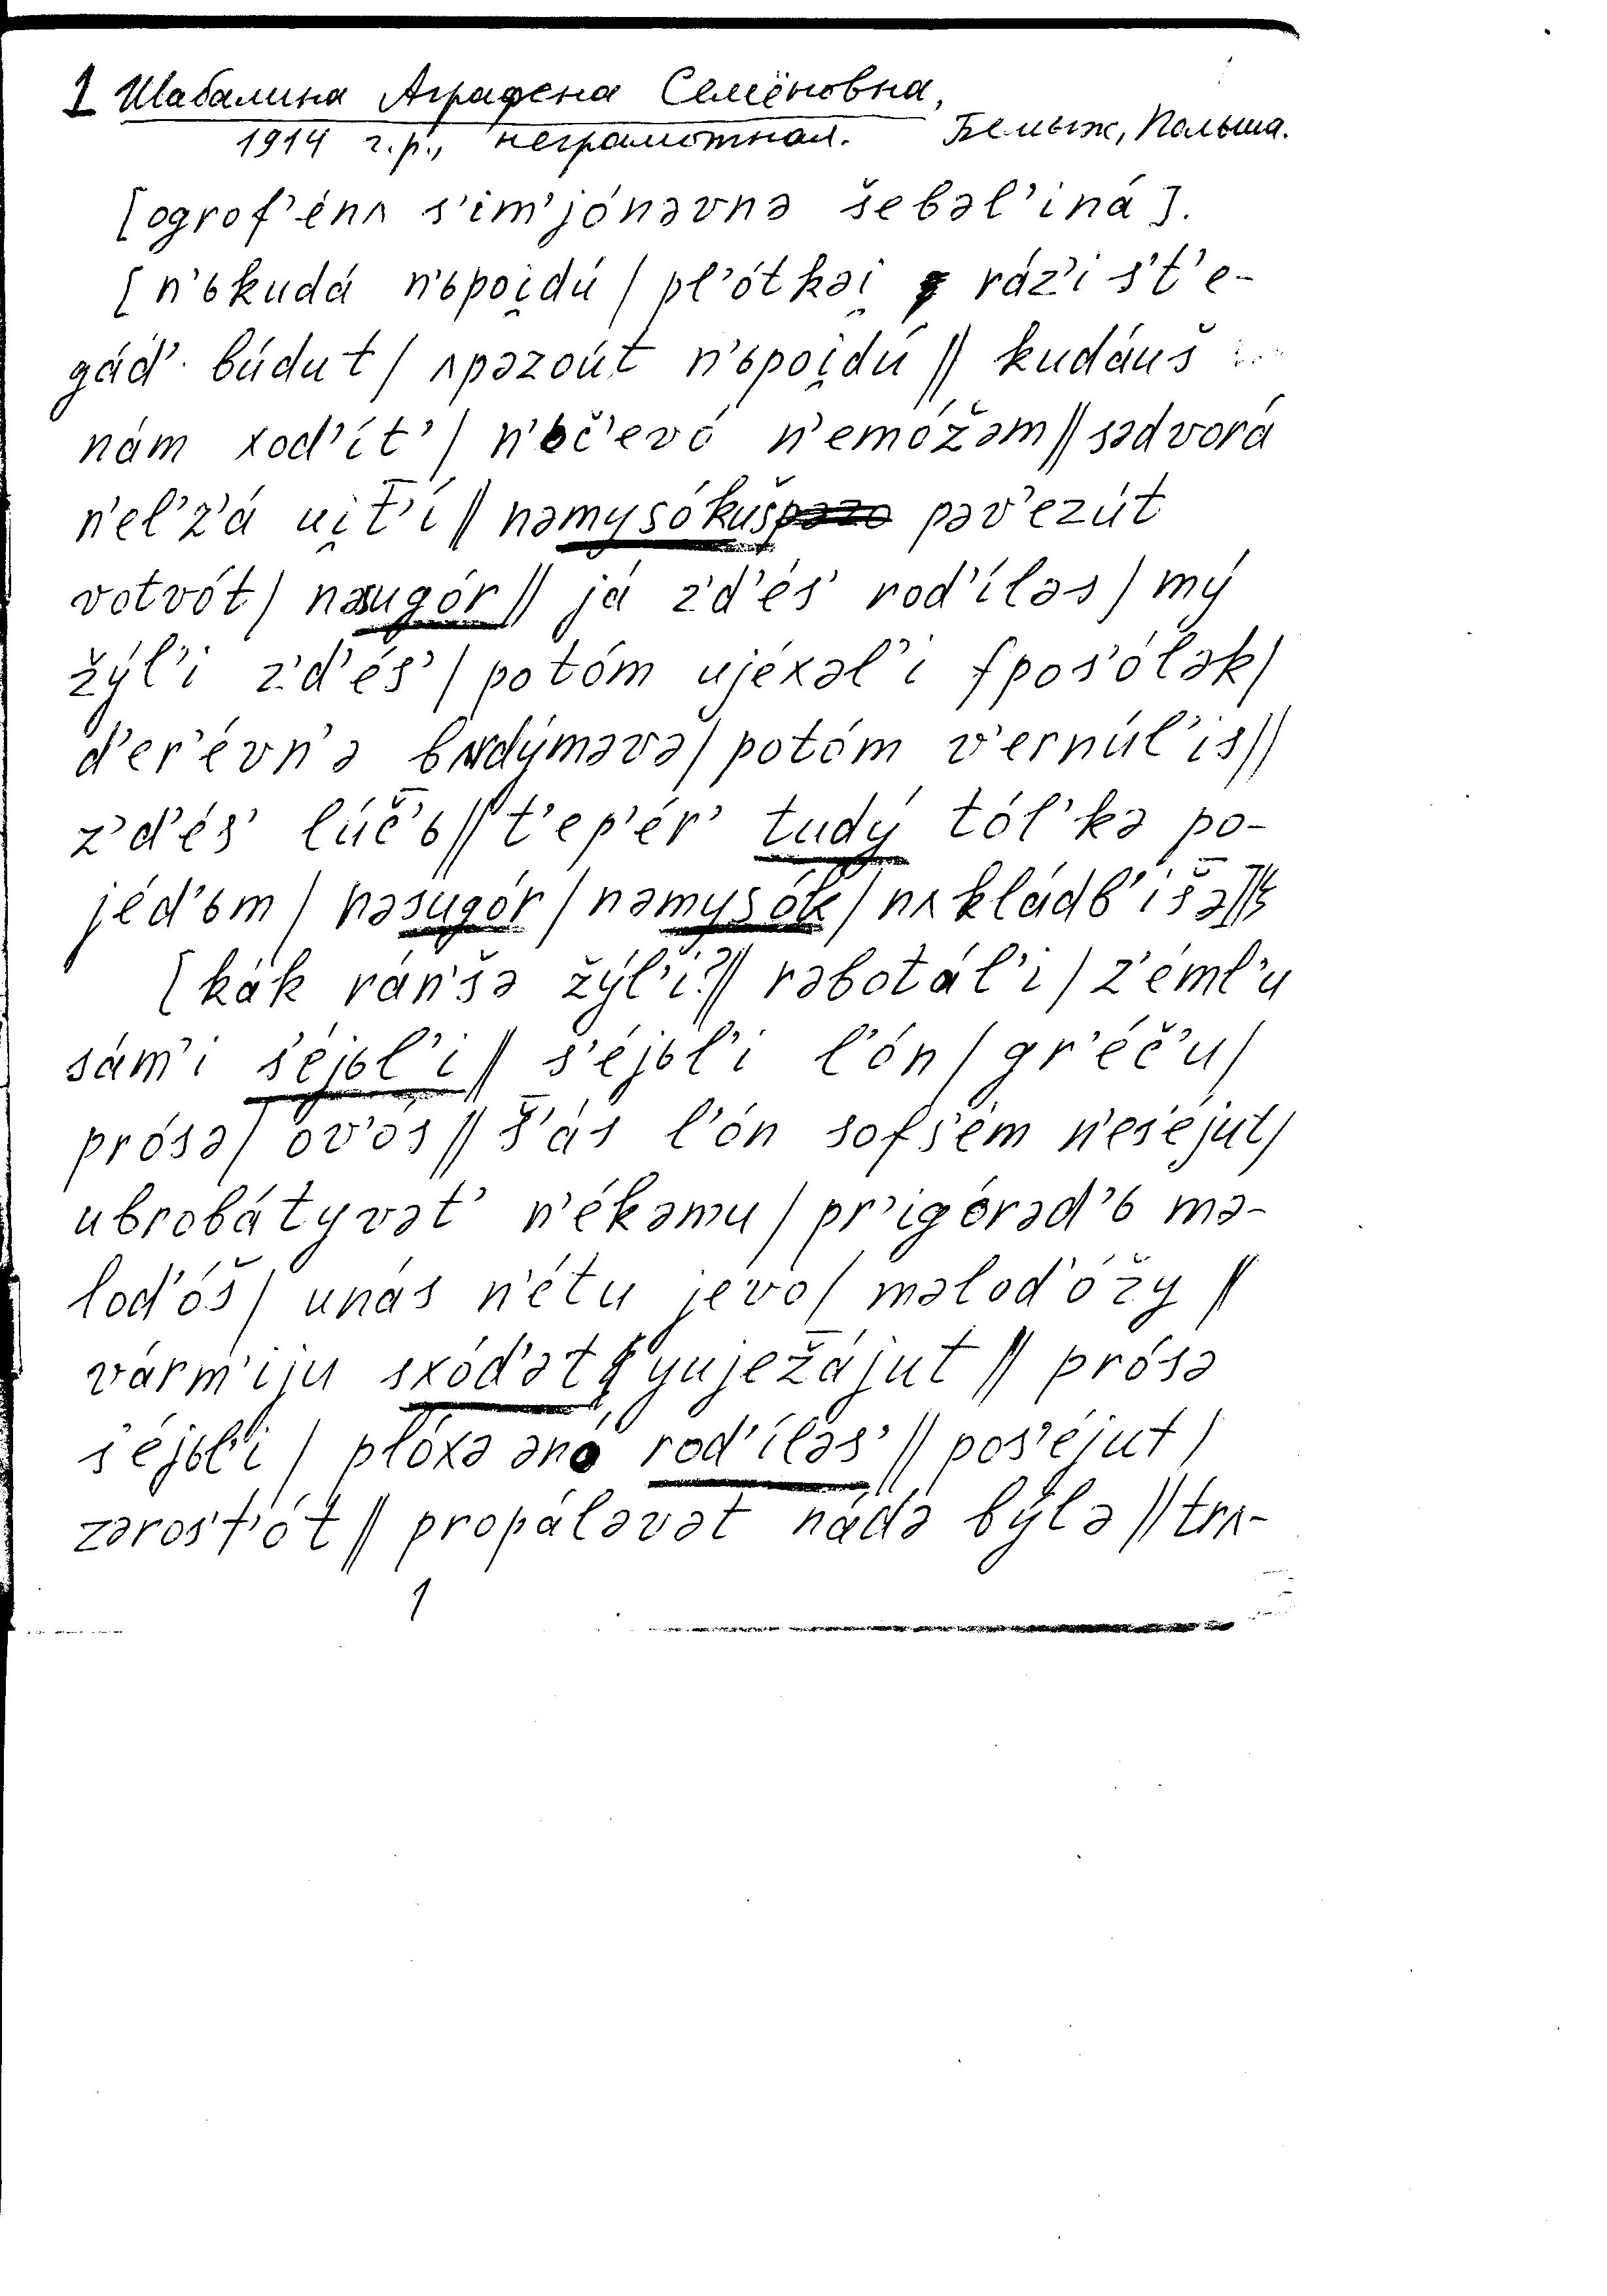 1 Шабалина Аграфена Семёновна,
1914 г.р., неграмотная. Белыж, Польша.
[ogrof’énʌ s’im’jónəvnə šebəl’iná].
[n’ьkudá n’ьpoi̯dú / pl’ótkəi̯ ráz’i s’t’e-
gád’ búdut / ʌpəzoút n’ьpoi̯dú // kudáuš
nám xod’ít’ / n’ьč’evó n’emóžəm // sədvorá
n’el’z’á ui̯t̅’í // nəmysókuš pəv’ezút
votvót / nəsugór // já z’d’és’ rod’íləs / mý
žýl’i z’d’és’ / potóm ujéxəl’i fpos’ólək /
d’er’évn’ə bʌdýməvə / potóm v’ernúl’is //
z’d’és’ lúč̅’ь // t’ep’ér’ tudý tól’kə po-
jéd’ьm / nəsugór / nəmysók / nʌkládb’iš̅ə //]
[kák rán’šə žýl’i? // rəbotál’i / z’éml’u
sám’i s’éjьl’i // s’éjьl’i l’ón / gr’éč’u /
prósə / ov’ós // š̅’ás l’ón sofs’ém n’es’éjut /
ubrobátyvət’ n’ékəmu / pr’igórəd’ь mə-
lod’óš / unás n’étu jevó / məlod’óžy //
várm’iju sxód’ət yujež̅ájut // prósə
s’éjьl’i / plóxə ənó rod’íləs’ // pos’éjut /
zəros’t’ót // propáləvət nádə býlə // trʌ-
1